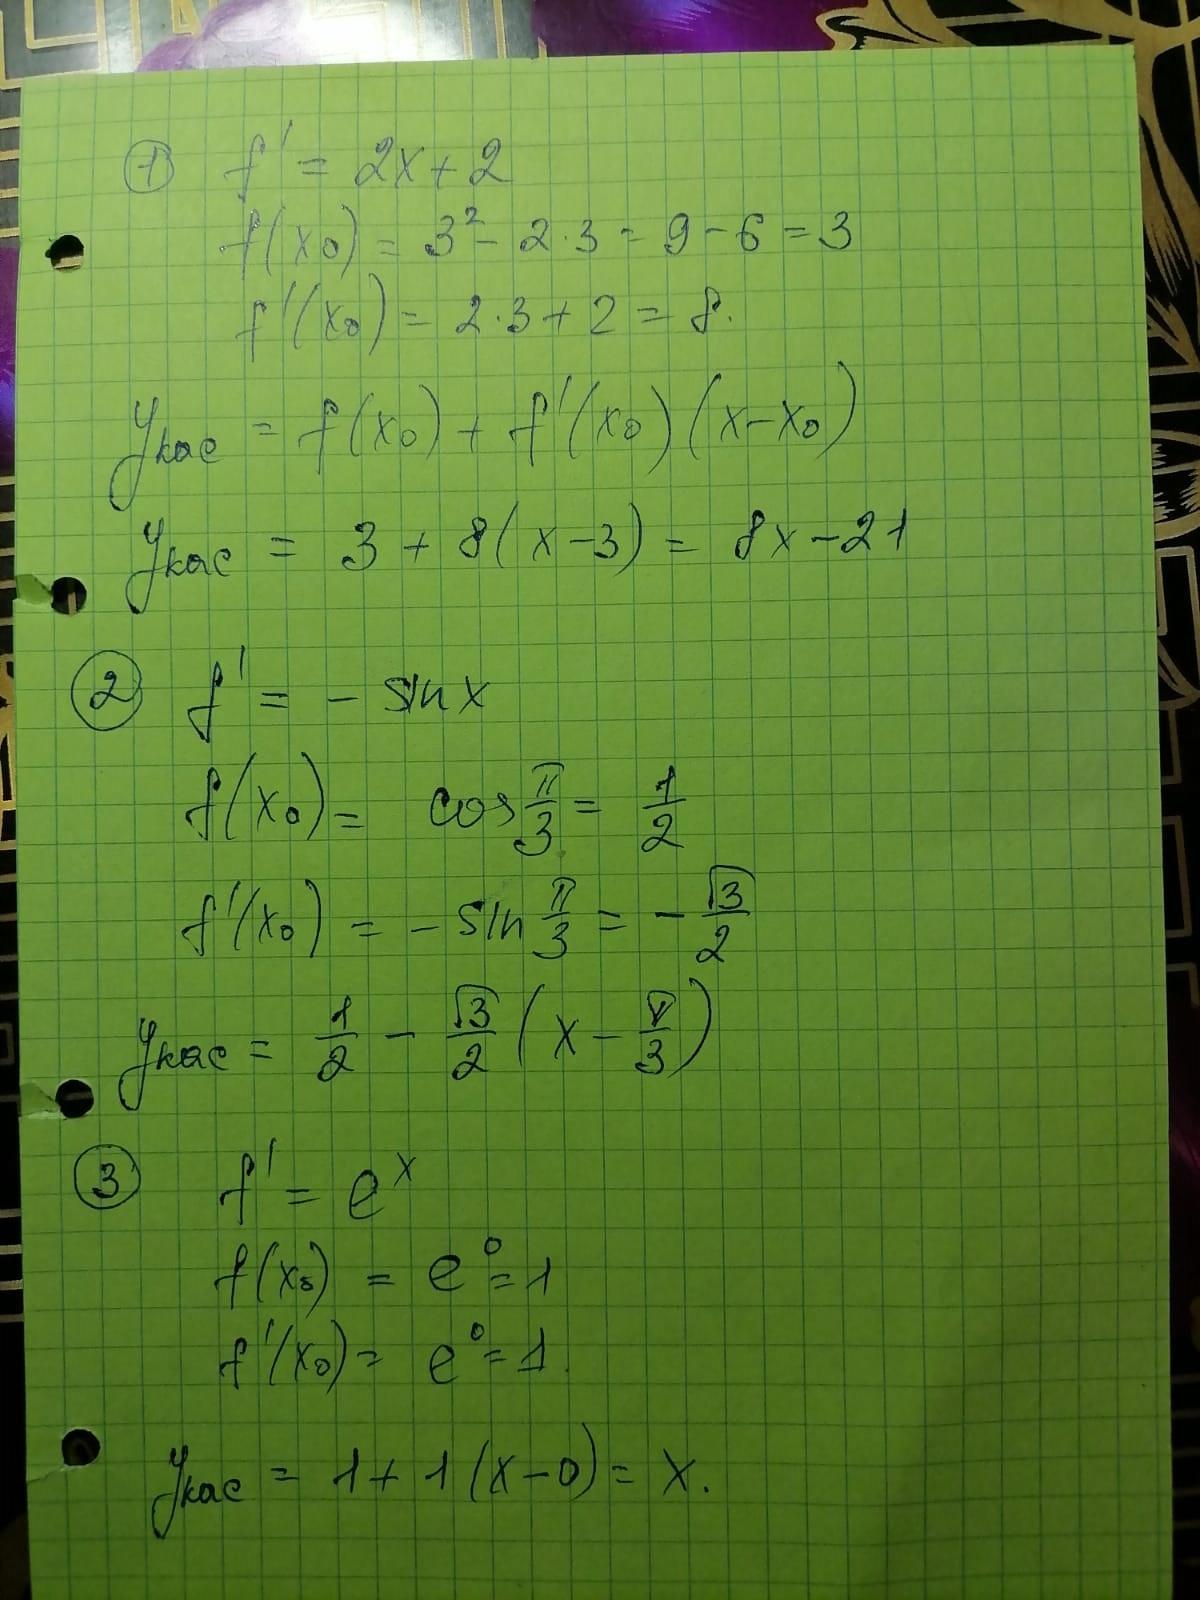 ① f' = 2x + 2
f(x₀) = 3² - 2·3 = 9 - 6 = 3
f'(x₀) = 2·3 + 2 = 8.
yкас = f(x₀) + f'(x₀)(x - x₀)
yкас = 3 + 8(x - 3) = 8x - 21
② f' = - sin x
f(x₀) = cos π/3 = 1/2
f'(x₀) = - sin π/3 = - √3/2
yкас = 1/2 - √3/2 (x - π/3)
③ f' = eˣ
f(x₀) = e⁰ = 1
f'(x₀) = e⁰ = 1.
yкас = 1 + 1(x - 0) = x.